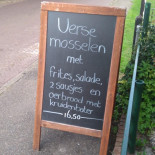 Verse
mosselen
met
frites, salade,
2 sausjes en
oerbrood met
kruidenboter
16.50